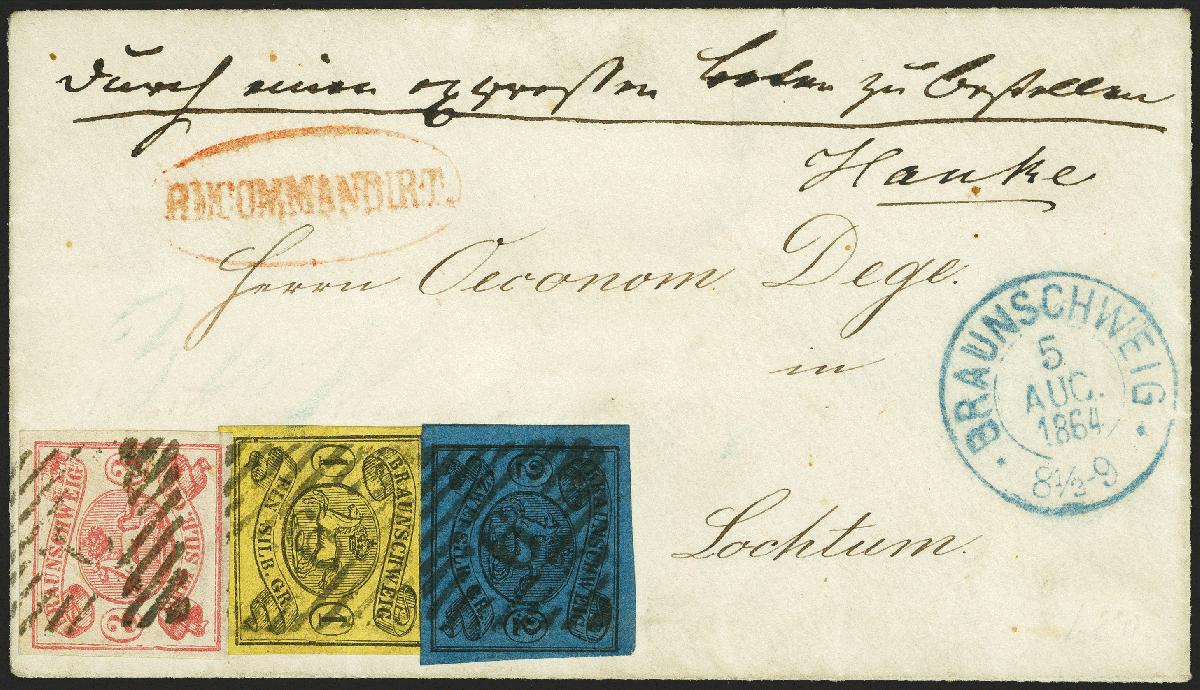 durch einen expressen boten zu bestellen
Hanke
RECOMMANDIRT.
Herrn Oeconom Dege.
in
Lochtum.
BRAUNSCHWEIG
5
AUG.
1864
8½-9
BRAUNSCHWEIG
3
3
BRAUNSCHWEIG
EIN SILB. GR.
1
1
BRAUNSCHWEIG
ZWEI SILB. GR.
2
2